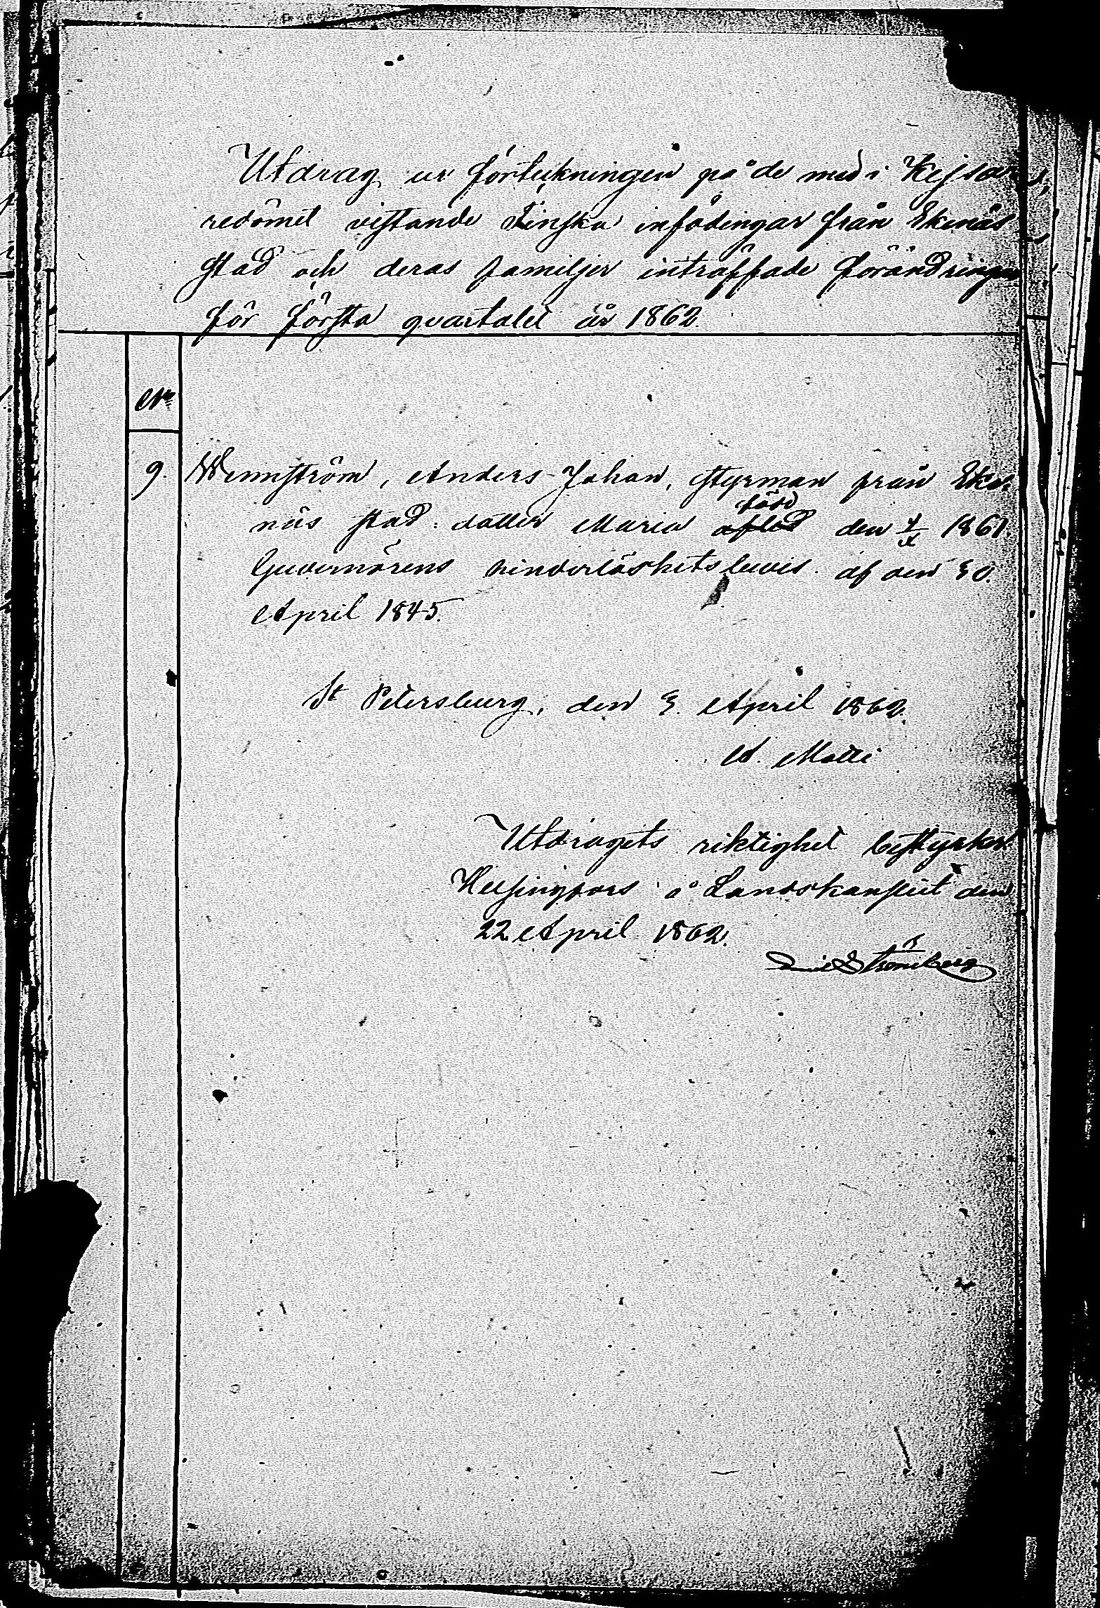 Utdrag ur förteckningen på de med i Kejsa
redömet vistande Finska infödingar från Ekenäs
stad och deras familjer inträffade förändringar
för första qvartalet år 1862
No
9. Wennström, Anders Johan, styrman från Eke
född
näs stad: dotter Maria aflad den 1861.
Guvernörens hinderlöshetsbevis af den 30
April 1845.
St Petersburg, den 3 April 1862.
A. Malli
Utdragets riktighet bestyrker
Helsingfors å Landskansliet den
22 April 1862.
Strömberg